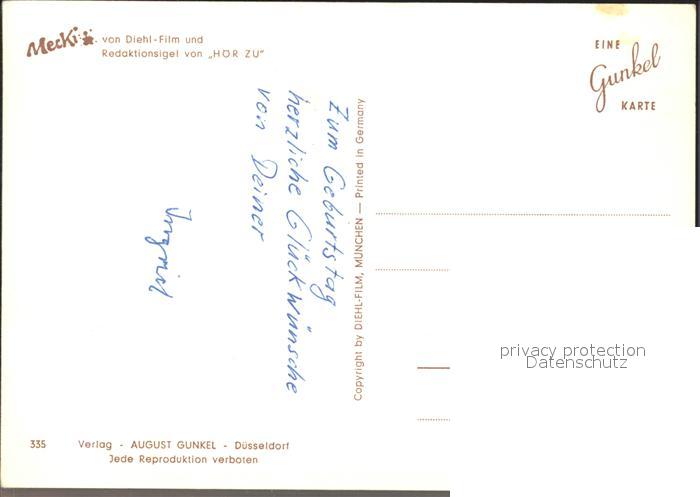 Mecki
von Diehl-Film und
Redaktionsigel von „HÖR ZU"
EINE
Gunkel
KARTE
Zum Geburtstag
herzliche Glückwünsche
von Deiner
Ingrid
Copyright by DIEHL-FILM, MÜNCHEN — Printed in Germany
privacy protection
Datenschutz
335
Verlag - AUGUST GUNKEL - Düsseldorf
Jede Reproduktion verboten